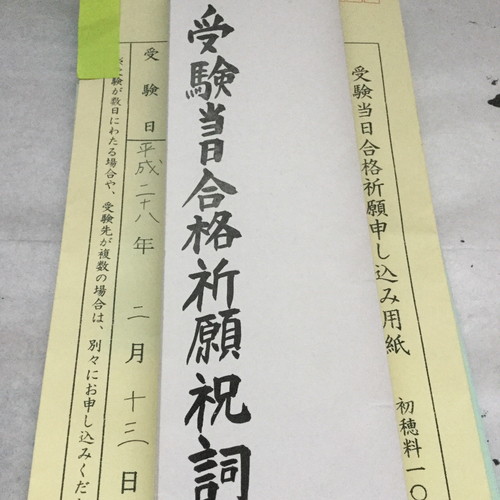 受験当日合格祈願申し込み用紙
初穂料一〇
受験当日合格祈願祝詞
受験日 平成二十八年 二月 十三日
験が数日にわたる場合や、受験先が複数の場合は、別々にお申し込みくだ